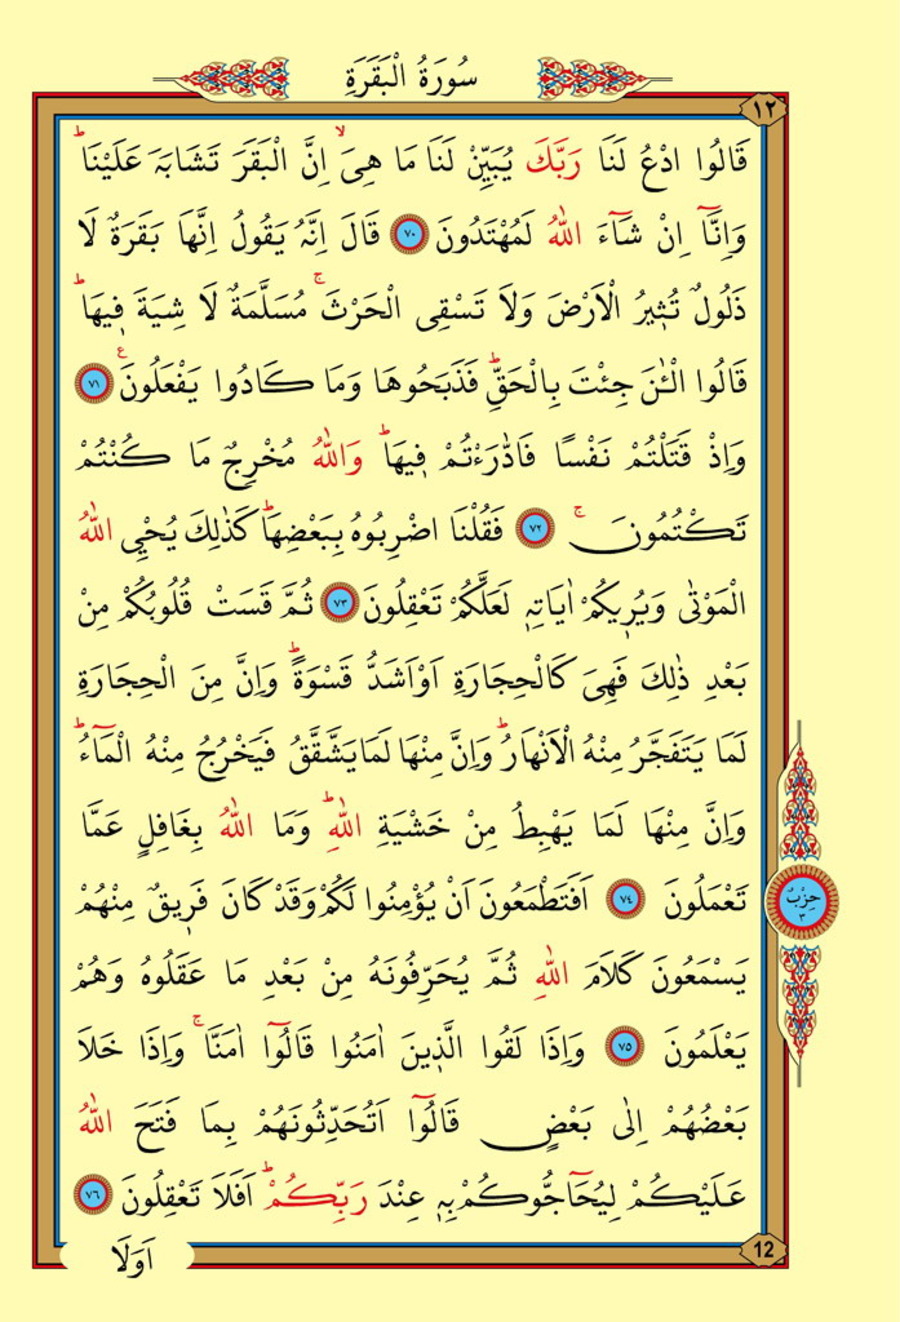 سُورَةُ الْبَقَرَةِ
١٢
قَالُوا ادْعُ لَنَا رَبَّكَ يُبَيِّنْ لَنَا مَا هِىَۙ اِنَّ الْبَقَرَ تَشَابَهَ عَلَيْنَاۜ
وَاِنَّٓا اِنْ شَٓاءَ اللّٰهُ لَمُهْتَدُونَ ﴿٧٠﴾ قَالَ اِنَّهُ يَقُولُ اِنَّهَا بَقَرَةٌ لَا
ذَلُولٌ تُث۪يرُ الْاَرْضَ وَلَا تَسْقِى الْحَرْثَۚ مُسَلَّمَةٌ لَا شِيَةَ ف۪يهَاۜ
قَالُوا الْـٰٔنَ جِئْتَ بِالْحَقِّۜ فَذَبَحُوهَا وَمَا كَادُوا يَفْعَلُونَ۟ ﴿٧١﴾
وَاِذْ قَتَلْتُمْ نَفْسًا فَادّٰرَءْتُمْ ف۪يهَاۜ وَاللّٰهُ مُخْرِجٌ مَا كُنْتُمْ
تَكْتُمُونَۚ ﴿٧٢﴾ فَقُلْنَا اضْرِبُوهُ بِبَعْضِهَاۜ كَذٰلِكَ يُحْيِى اللّٰهُ
الْمَوْتٰى وَيُر۪يكُمْ اٰيَاتِه۪ لَعَلَّكُمْ تَعْقِلُونَ ﴿٧٣﴾ ثُمَّ قَسَتْ قُلُوبُكُمْ مِنْ
بَعْدِ ذٰلِكَ فَهِىَ كَالْحِجَارَةِ اَوْ اَشَدُّ قَسْوَةًۜ وَاِنَّ مِنَ الْحِجَارَةِ
لَمَا يَتَفَجَّرُ مِنْهُ الْاَنْهَارُۜ وَاِنَّ مِنْهَا لَمَا يَشَّقَّقُ فَيَخْرُجُ مِنْهُ الْمَٓاءُۜ
وَاِنَّ مِنْهَا لَمَا يَهْبِطُ مِنْ خَشْيَةِ اللّٰهِۜ وَمَا اللّٰهُ بِغَافِلٍ عَمَّا
تَعْمَلُونَ ﴿٧٤﴾ اَفَتَطْمَعُونَ اَنْ يُؤْمِنُوا لَكُمْ وَقَدْ كَانَ فَر۪يقٌ مِنْهُمْ
حِزْبٌ
٣
يَسْمَعُونَ كَلَامَ اللّٰهِ ثُمَّ يُحَرِّفُونَهُ مِنْ بَعْدِ مَا عَقَلُوهُ وَهُمْ
يَعْلَمُونَ ﴿٧٥﴾ وَاِذَا لَقُوا الَّذ۪ينَ اٰمَنُوا قَالُٓوا اٰمَنَّاۚ وَاِذَا خَلَا
بَعْضُهُمْ اِلٰى بَعْضٍ قَالُٓوا اَتُحَدِّثُونَهُمْ بِمَا فَتَحَ اللّٰهُ
عَلَيْكُمْ لِيُحَٓاجُّوكُمْ بِه۪ عِنْدَ رَبِّكُمْۜ اَفَلَا تَعْقِلُونَ ﴿٧٦﴾
12
اَوَلَا